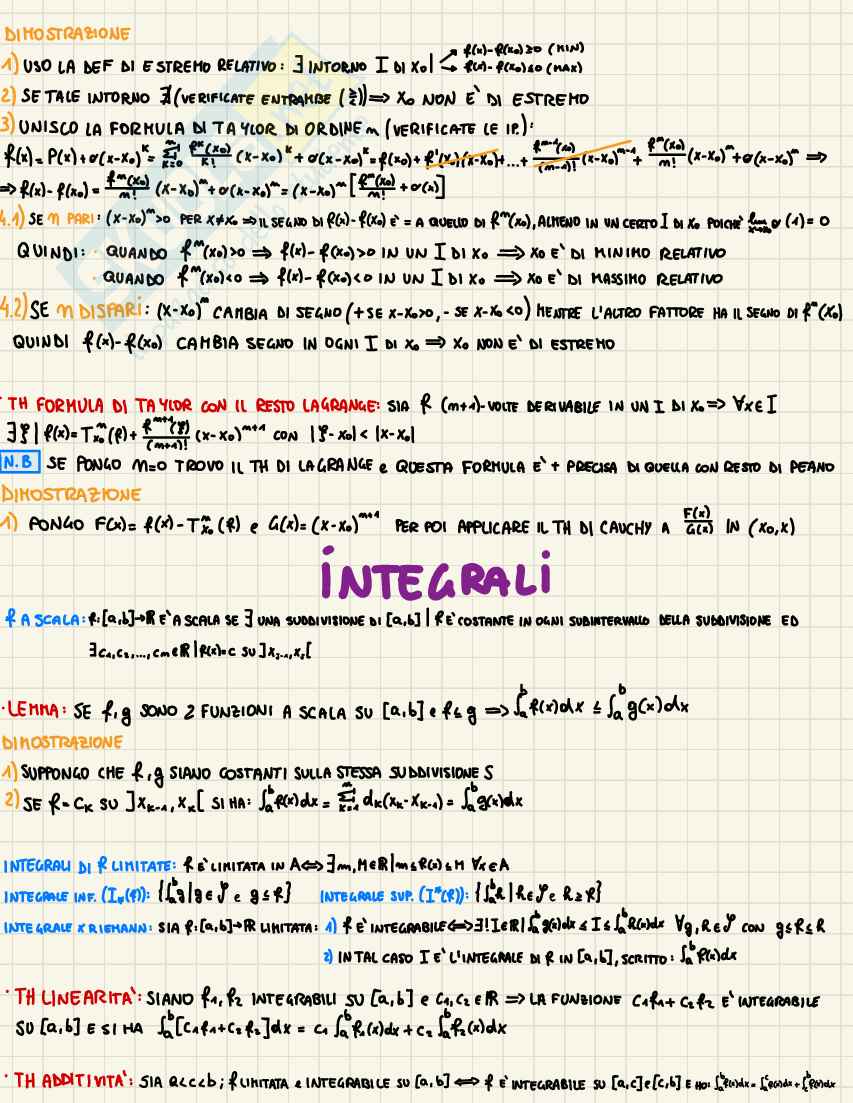 DIMOSTRAZIONE
1) USO LA DEF DI ESTREMO RELATIVO: ∃ INTORNO I DI x₀ | f(x)-f(x₀)≥0 (MIN)
f(x)-f(x₀)≤0 (MAX)
2) SE TALE INTORNO ∄ (VERIFICATE ENTRAMBE (≥ ≤)) ⟹ x₀ NON E' DI ESTREMO
3) UNISCO LA FORMULA DI TAYLOR DI ORDINE n (VERIFICATE LE IP.):
f(x) = P(x)+σ(x-x₀)^k = Σ_{k=0}^n f^k(x₀)/k! (x-x₀)^k + σ(x-x₀)^k = f(x₀) + f'(x₀)(x-x₀) + ... + f^{n-1}(x₀)/(n-1)! (x-x₀)^{n-1} + f^n(x₀)/n! (x-x₀)^n + σ(x-x₀)^n ⟹
⟹ f(x)-f(x₀) = f^n(x₀)/n! (x-x₀)^n + σ(x-x₀)^n = (x-x₀)^n [f^n(x₀)/n! + σ(1)]
4.1) SE n PARI: (x-x₀)^n>0 PER x≠x₀ ⟹ IL SEGNO DI f(x)-f(x₀) E' = A QUELLO DI f^n(x₀), ALMENO IN UN CERTO I DI x₀ POICHE' lim_{x→x₀} σ(1)=0
QUINDI: · QUANDO f^n(x₀)>0 ⟹ f(x)-f(x₀)>0 IN UN I DI x₀ ⟹ x₀ E' DI MINIMO RELATIVO
· QUANDO f^n(x₀)<0 ⟹ f(x)-f(x₀)<0 IN UN I DI x₀ ⟹ x₀ E' DI MASSIMO RELATIVO
4.2) SE n DISPARI: (x-x₀)^n CAMBIA DI SEGNO (+ SE x-x₀>0, - SE x-x₀<0) MENTRE L'ALTRO FATTORE HA IL SEGNO DI f^n(x₀)
QUINDI f(x)-f(x₀) CAMBIA SEGNO IN OGNI I DI x₀ ⟹ x₀ NON E' DI ESTREMO
· TH FORMULA DI TAYLOR CON IL RESTO LAGRANGE: SIA f (n+1)-VOLTE DERIVABILE IN UN I DI x₀ ⟹ ∀x∈I
∃ξ | f(x) = T^n_{x₀}(f) + f^{n+1}(ξ)/(n+1)! (x-x₀)^{n+1} CON |ξ-x₀| < |x-x₀|
N.B SE PONGO n=0 TROVO IL TH DI LAGRANGE e QUESTA FORMULA E' + PRECISA DI QUELLA CON RESTO DI PEANO
DIMOSTRAZIONE
1) PONGO F(x) = f(x) - T^n_{x₀}(f) e G(x) = (x-x₀)^{n+1} PER POI APPLICARE IL TH DI CAUCHY A F(x)/G(x) IN (x₀,x)
INTEGRALI
f A SCALA: f:[a,b]→ℝ E' A SCALA SE ∃ UNA SUDDIVISIONE DI [a,b] | f E' COSTANTE IN OGNI SUBINTERVALLO DELLA SUDDIVISIONE ED
∃ c₁,c₂,...,cₙ∈ℝ | f(x)=c SU ]x_{j-1},x_j[
· LEMMA: SE f,g SONO 2 FUNZIONI A SCALA SU [a,b] e f≤g ⟹ ∫_a^b f(x)dx ≤ ∫_a^b g(x)dx
DIMOSTRAZIONE
1) SUPPONGO CHE f,g SIANO COSTANTI SULLA STESSA SUDDIVISIONE S
2) SE f=c_K SU ]x_{K-1},x_K[ SI HA: ∫_a^b f(x)dx = Σ_{K=1}^n d_K(x_K-x_{K-1}) = ∫_a^b g(x)dx
INTEGRALI DI f LIMITATE: f E' LIMITATA IN A ⟺ ∃m,M∈ℝ | m≤f(x)≤M ∀x∈A
INTEGRALE INF. (I_*(f)): {∫_a^b g | g∈𝒮 e g≤f} INTEGRALE SUP. (I*(f)): {∫_a^b h | h∈𝒮 e h≥f}
INTEGRALE x RIEMANN: SIA f:[a,b]→ℝ LIMITATA: 1) f E' INTEGRABILE ⟺ ∃! I∈ℝ | ∫_a^b g(x)dx ≤ I ≤ ∫_a^b h(x)dx ∀g,h∈𝒮 CON g≤f≤h
2) IN TAL CASO I E' L'INTEGRALE DI f IN [a,b], SCRITTO: ∫_a^b f(x)dx
· TH LINEARITA': SIANO f₁,f₂ INTEGRABILI SU [a,b] e c₁,c₂∈ℝ ⟹ LA FUNZIONE c₁f₁+c₂f₂ E' INTEGRABILE
SU [a,b] E SI HA ∫_a^b [c₁f₁+c₂f₂]dx = c₁∫_a^b f₁(x)dx + c₂∫_a^b f₂(x)dx
· TH ADDITIVITA': SIA a<c<b; f LIMITATA e INTEGRABILE SU [a,b] ⟺ f E' INTEGRABILE SU [a,c] e [c,b] E HO: ∫_a^b f(x)dx = ∫_a^c f(x)dx + ∫_c^b f(x)dx